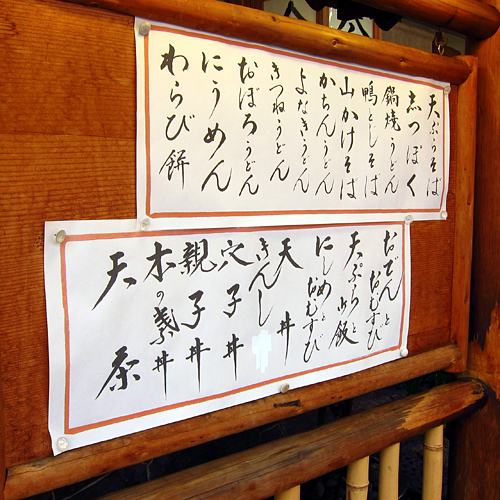 天ぷらそば
志っぽく
鍋焼うどん
鴨とじそば
山かけそば
かちんうどん
よなきうどん
きつねうどん
おぼろうどん
にうめん
わらび餅
おでんとおむすび
天ぷらと御飯
にしめとおむすび
天丼
きんし
穴子丼
親子丼
木の葉丼
天茶